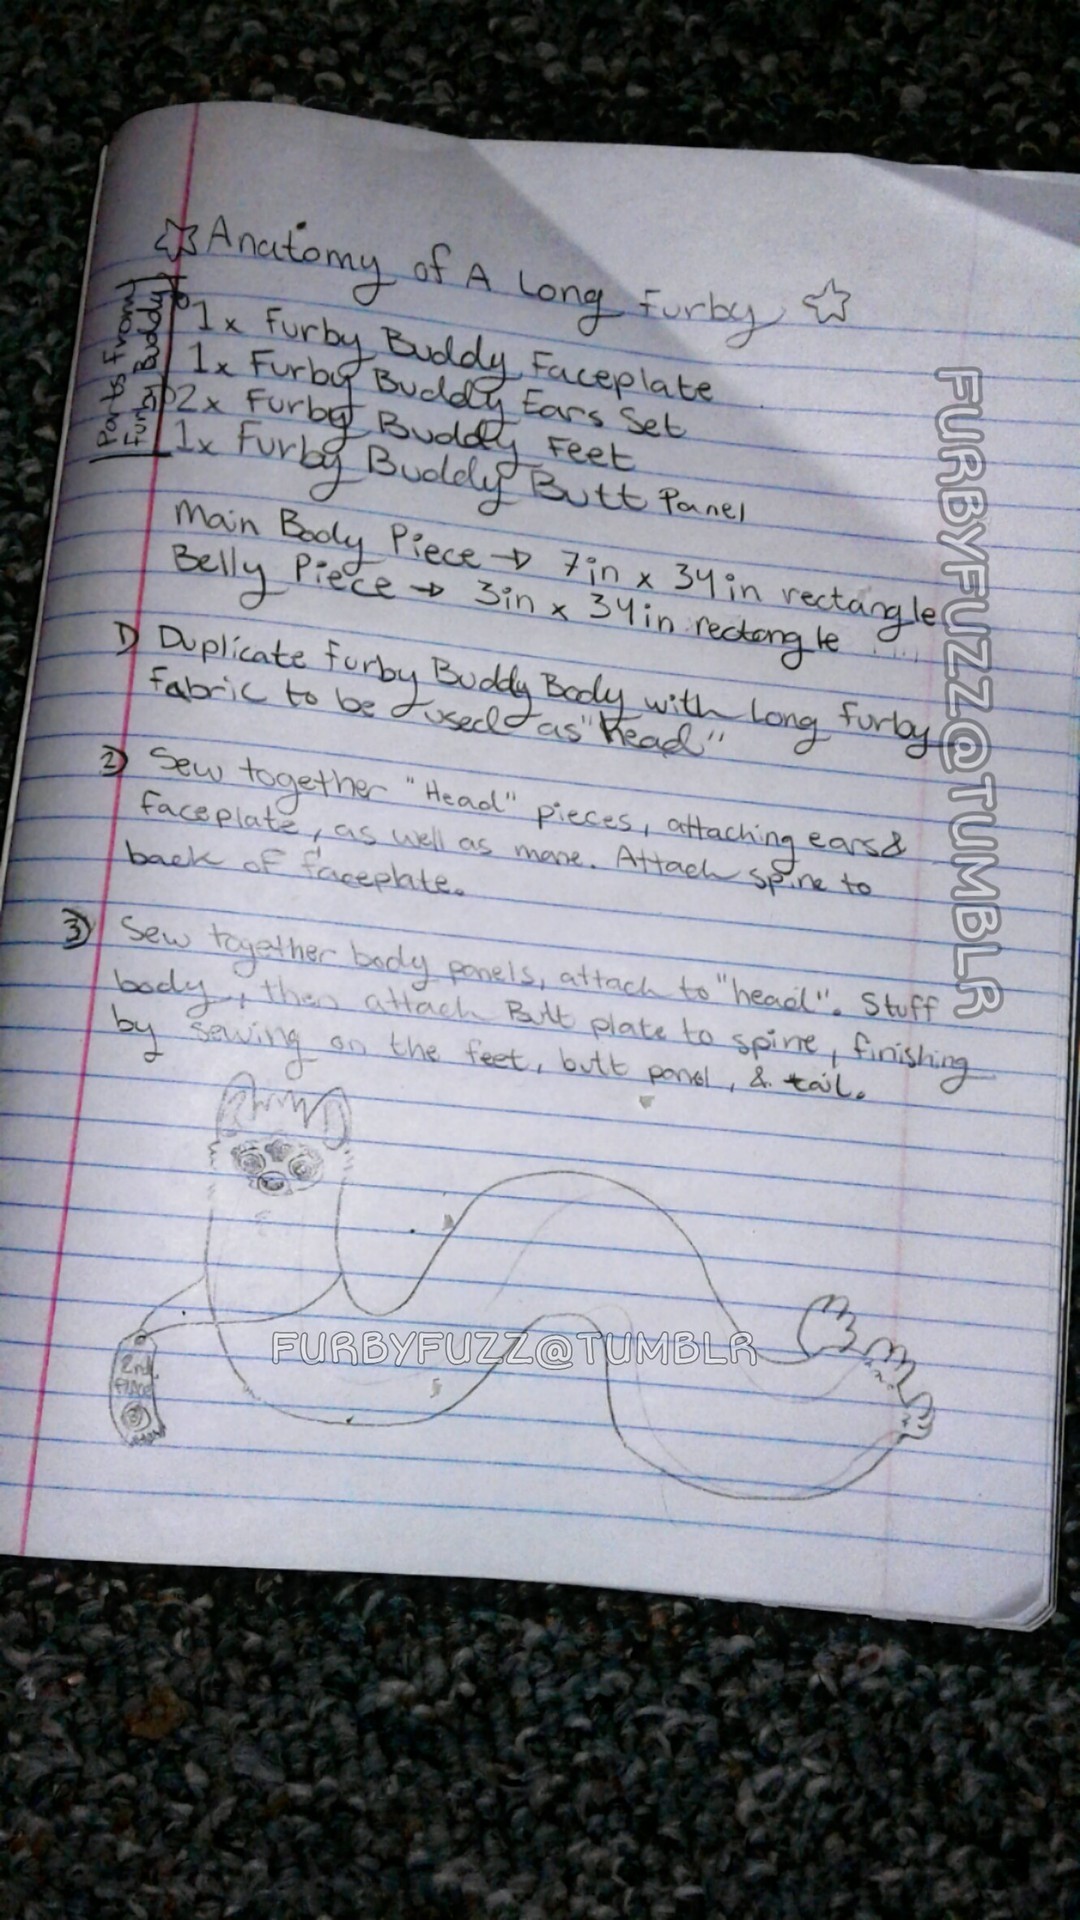 Anatomy of A Long Furby
Parts From
Furby Buddy
1x Furby Buddy Faceplate
1x Furby Buddy Ears Set
2x Furby Buddy Feet
1x Furby Buddy Butt Panel
Main Body Piece → 7in x 34in rectangle
Belly Piece → 3in x 34in rectangle
1) Duplicate Furby Buddy Body with Long Furby
fabric to be used as "head"
2) Sew together "Head" pieces, attaching ears &
faceplate, as well as mane. Attach spine to
back of faceplate.
3) Sew together body panels, attach to "head". Stuff
body, then attach Butt plate to spine, finishing
by sewing on the feet, butt panel, & tail.
2nd
Place
FURBYFUZZ@TUMBLR
FURBYFUZZ@TUMBLR